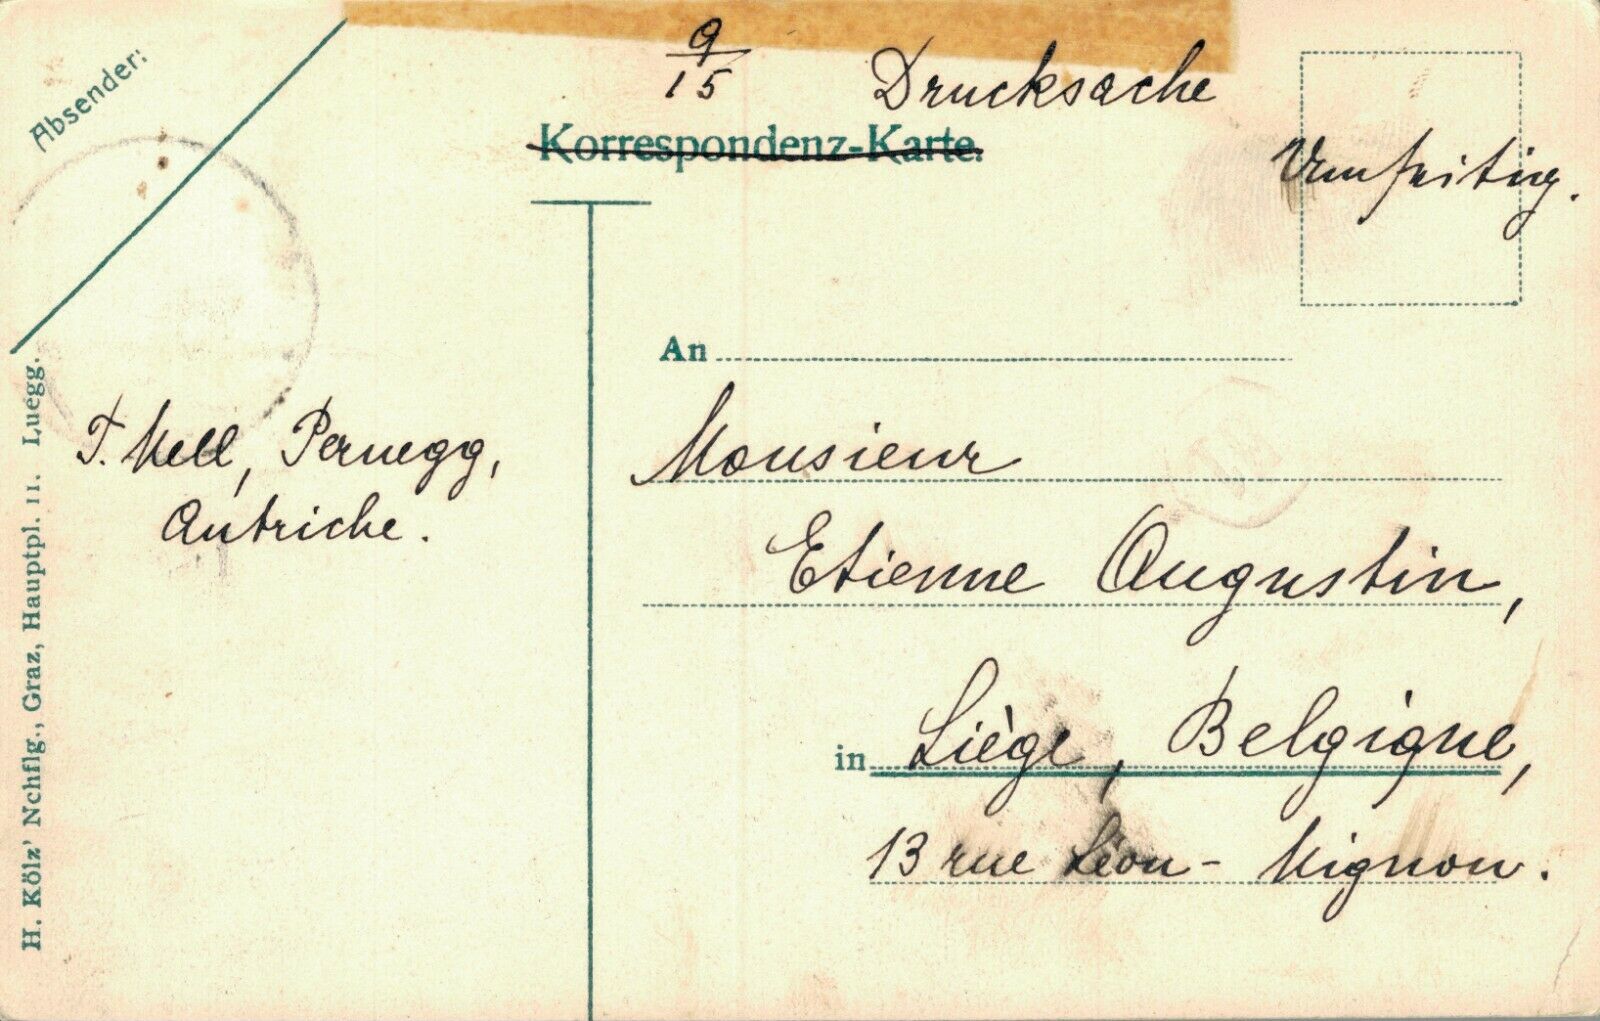 Absender:
9/15 Drucksache
Korrespondenz-Karte.
Umseitig.
An
T. Mell, Pernegg,
Autriche.
Monsieur
Etienne Augustin,
in Liège, Belgique,
13 rue Léon-Mignon.
H. Kölz' Nchflg., Graz, Hauptpl. 11. Luegg.